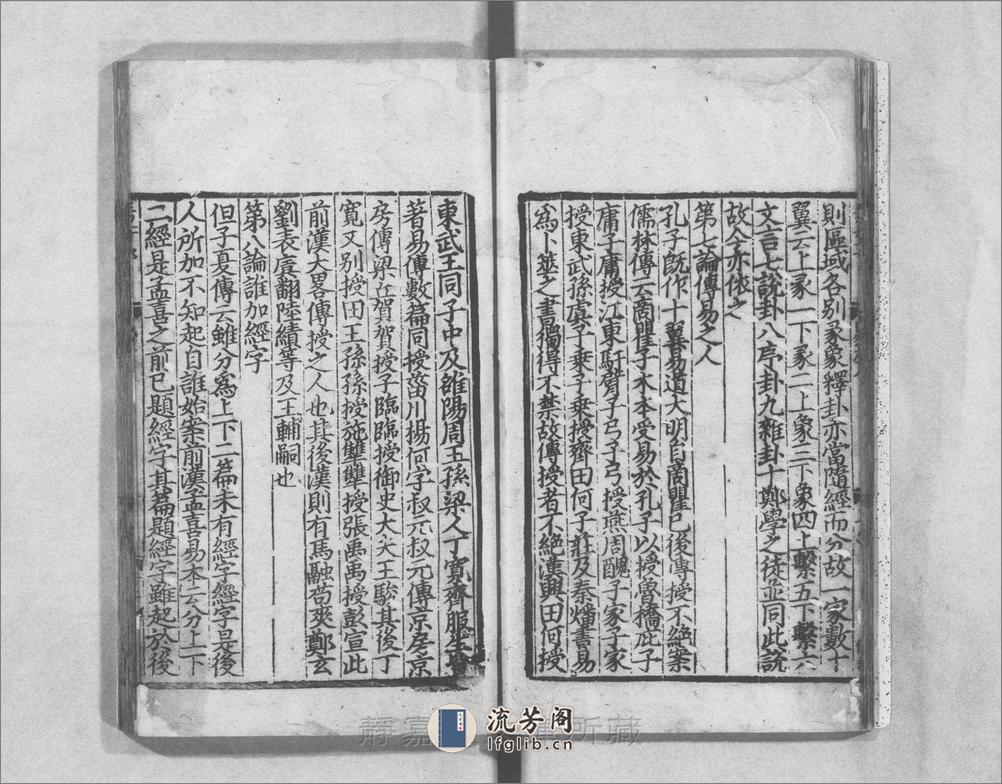 則區域各別彖象釋卦亦當隨經而分故一家數十
翼云上彖一下彖二上象三下象四上繫五下繫六
文言七說卦八序卦九雜卦十鄭學之徒並同此說
故今亦依之
第七論傳易之人
孔子旣作十翼易道大明自商瞿已後傳授不絶案
儒林傳云商瞿子木本受易於孔子以授魯橋庇子
庸子庸授江東馯臂子弓子弓授燕周醜子家子家
授東武孫虞子乗子乗授齊田何子莊及秦燔書易
爲卜筮之書獨得不禁故傳授者不絶漢興田何授
東武王同子中及雒陽周王孫梁人丁寬齊服生皆
著易傳數篇同授菑川楊何字叔元叔元傳京房京
房傳梁丘賀賀授子臨臨授御史大夫王駿其後丁
寬又别授田王孫孫授施讎讎授張禹禹授彭宣此
前漢大畧傳授之人也其後漢則有馬融荀爽鄭玄
劉表虞翻陸績等及王輔嗣也
第八論誰加經字
但子夏傳云雖分爲上下二篇未有經字經字是後
人所加不知起自誰始案前漢孟喜易本云分上下
二經是孟喜之前已題經字其篇題經字雖起於後
靜嘉
所藏
流芳阁
lfglib.cn